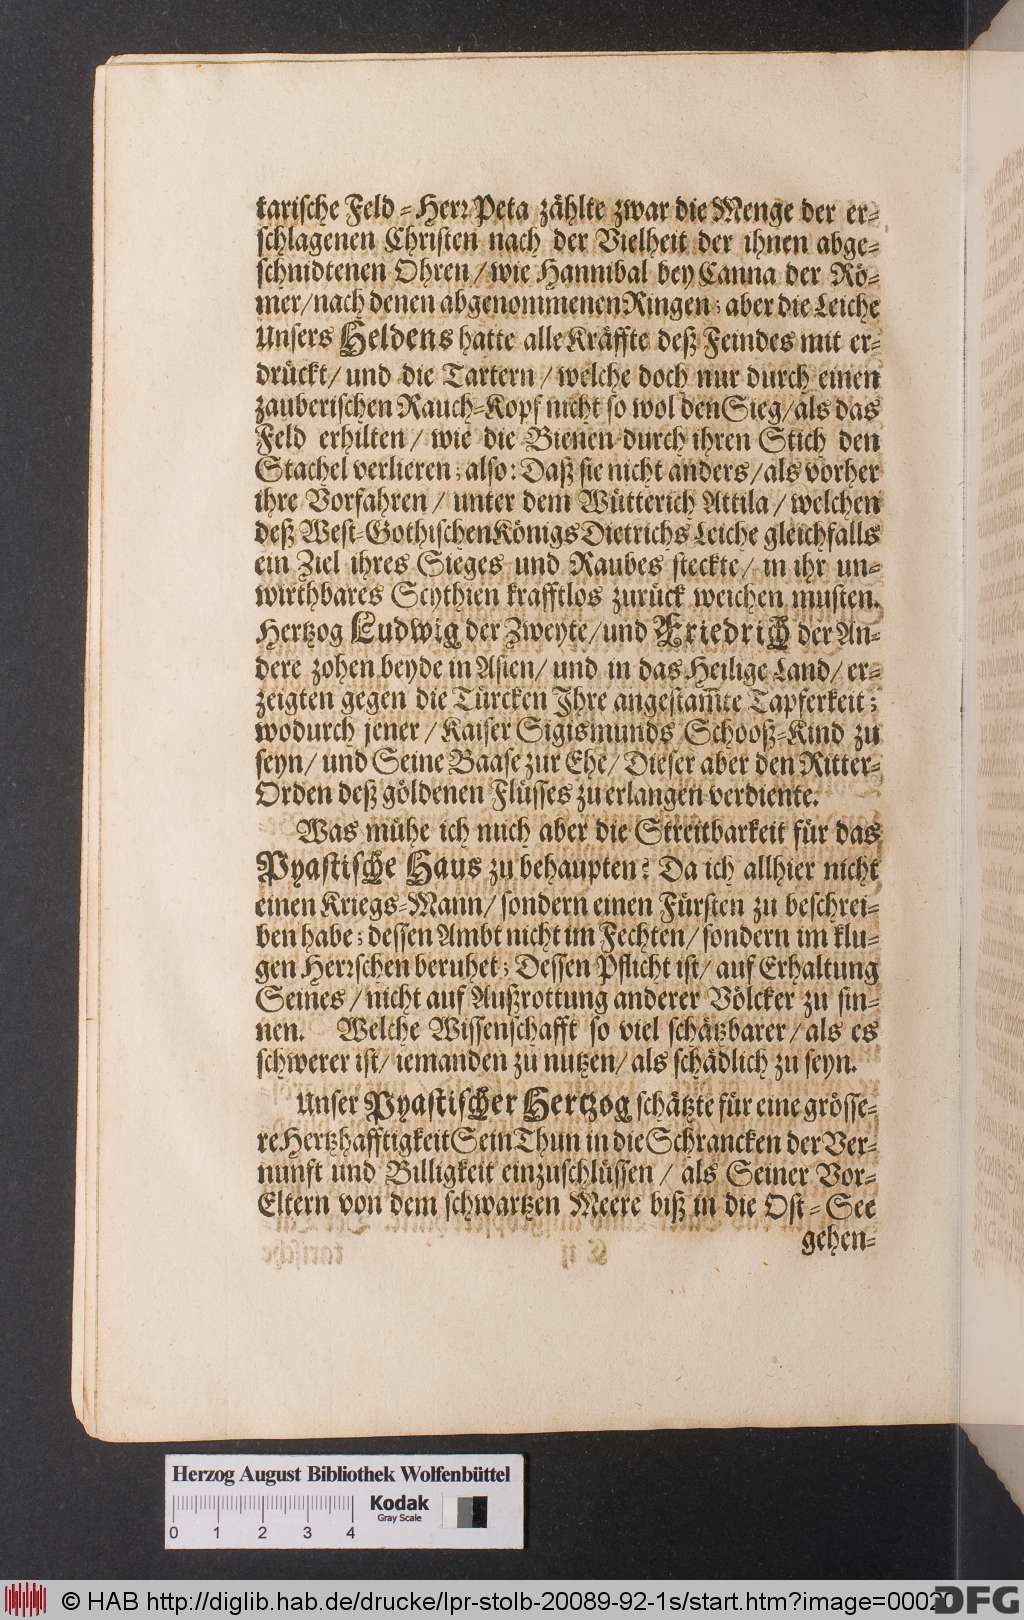 tarische Feld-Herr Peta zählte zwar die Menge der er-
schlagenen Christen nach der Vielheit der ihnen abge-
schnidtenen Ohren / wie Hannibal bey Canna der Rö-
mer / nach denen abgenommenen Ringen; aber die Leiche
Unsers Heldens hatte alle Kräffte deß Feindes mit er-
drückt / und die Tartern / welche doch nur durch einen
zauberischen Rauch-Kopf nicht so wol den Sieg / als das
Feld erhilten / wie die Bienen durch ihren Stich den
Stachel verlieren; also: Daß sie nicht anders / als vorher
ihre Vorfahren / unter dem Wütterich Attila / welchen
deß West-Gothischen Königs Dietrichs Leiche gleichfalls
ein Ziel ihres Sieges und Raubes steckte / in ihr un-
wirthbares Scythien krafftlos zurück weichen musten.
Hertzog Ludwig der Zweyte / und Friedrich der An-
dere zohen beyde in Asien / und in das Heilige Land / er-
zeigten gegen die Türcken Ihre angestam̅te Tapferkeit;
wodurch jener / Kaiser Sigismunds Schooß-Kind zu
seyn / und Seine Baase zur Ehe / Dieser aber den Ritter-
Orden deß göldenen Flüsses zu erlangen verdiente.
Was mühe ich mich aber die Streitbarkeit für das
Pyastische Haus zu behaupten? Da ich allhier nicht
einen Kriegs-Mann / sondern einen Fürsten zu beschrei-
ben habe; dessen Ambt nicht im Fechten / sondern im klu-
gen Herrschen beruhet; Dessen Pflicht ist / auf Erhaltung
Seines / nicht auf Außrottung anderer Völcker zu sin-
nen. Welche Wissenschafft so viel schätzbarer / als es
schwerer ist / iemanden zu nutzen / als schädlich zu seyn.
Unser Pyastischer Hertzog schätzte für eine grösse-
re Hertzhafftigkeit Sein Thun in die Schrancken der Ver-
nunft und Billigkeit einzuschlüssen / als Seiner Vor-
Eltern von dem schwartzen Meere biß in die Ost-See
gehen-
Herzog August Bibliothek Wolfenbüttel
Kodak
Gray Scale
0 1 2 3 4
© HAB http://diglib.hab.de/drucke/lpr-stolb-20089-92-1s/start.htm?image=00020
DFG